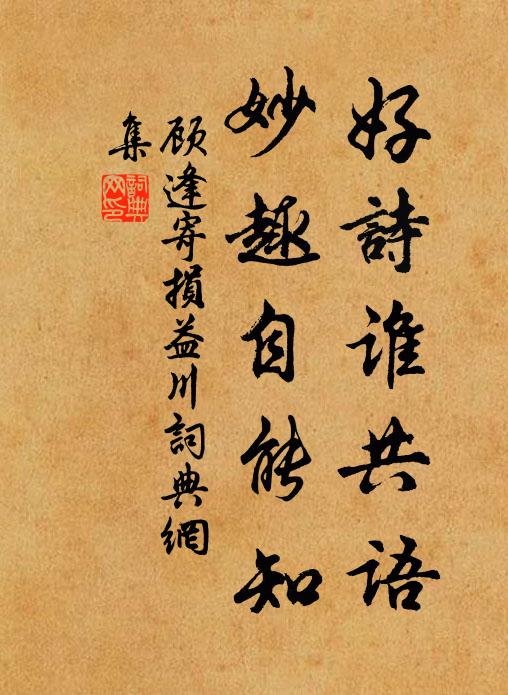 好詩谁共語
妙趣自能知
顾逢寄損益川詞典網
集
詞典
网印